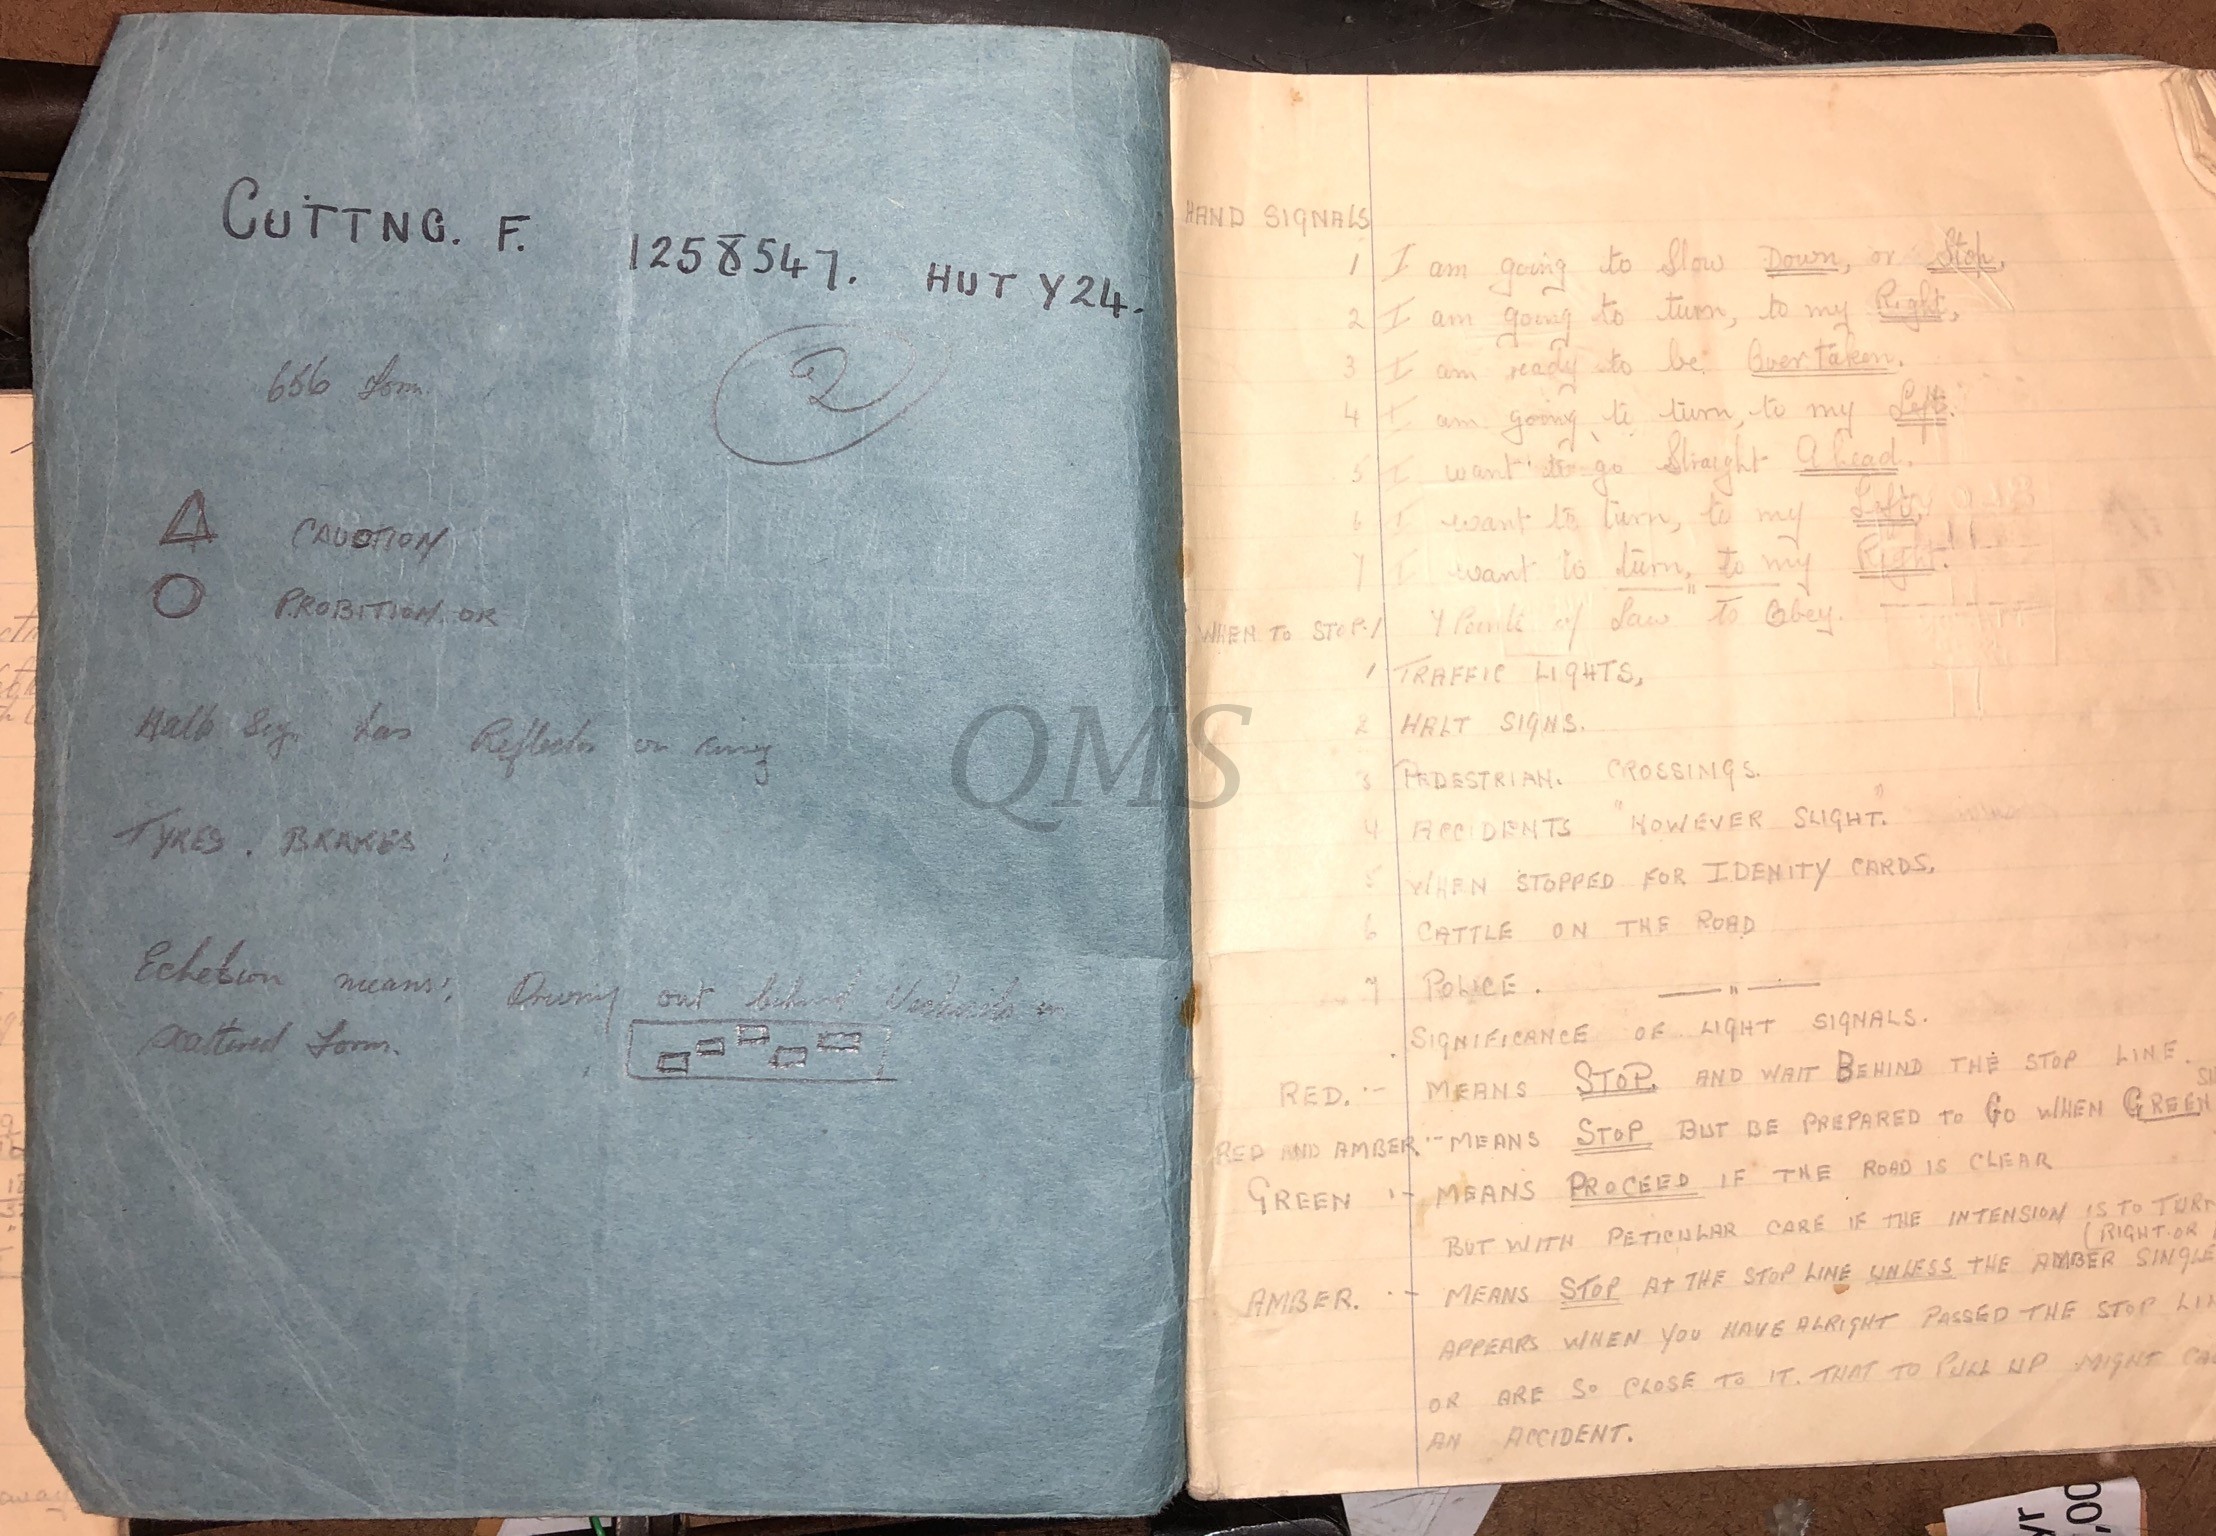 CUTTNG. F. 1258547. HUT Y24.
656 Form.
2
CAUOTION
PROBITION. OR
Halt Sign has Reflector on ring
TYRES. BRAKES.
Echelon means: Driving out behind in
scattered Form.
HAND SIGNALS
1 I am going to Slow Down, or Stop,
2 I am going to turn, to my Right,
3 I am ready to be Over Taken.
4 I am going to turn, to my Left.
5 I want to go Straight Ahead.
6 I want to turn, to my Left,
7 I want to turn, to my Right.
WHEN TO STOP. 7 Points of Law to Obey.
1 TRAFFIC LIGHTS,
2 HALT SIGNS.
3 PEDESTRIAN. CROSSINGS.
4 ACCIDENTS "HOWEVER SLIGHT."
5 WHEN STOPPED FOR IDENITY CARDS,
6 CATTLE ON THE ROAD
7 POLICE.
SIGNIFICANCE OF LIGHT SIGNALS.
RED. :- MEANS STOP. AND WAIT BEHIND THE STOP LINE.
RED AND AMBER :- MEANS STOP BUT BE PREPARED TO GO WHEN GREEN
GREEN :- MEANS PROCEED IF THE ROAD IS CLEAR
BUT WITH PETICULAR CARE IF THE INTENSION IS TO TURN
(RIGHT. OR
AMBER. :- MEANS STOP AT THE STOP LINE UNLESS THE AMBER SINGLE
APPEARS WHEN YOU HAVE ALRIGHT PASSED THE STOP LIN
OR ARE SO CLOSE TO IT. THAT TO PULL UP MIGHT CA
AN ACCIDENT.
QMS
yr
,00